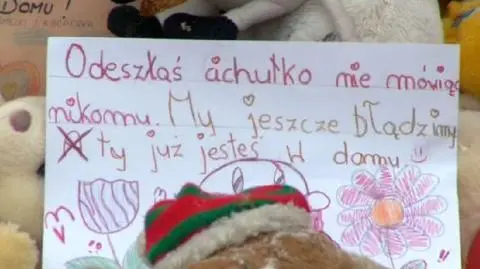 DOMU!
Odeszłaś achutko nie mówiąc
nikomu. My jeszcze błądzimy
A ty już jesteś w domu.